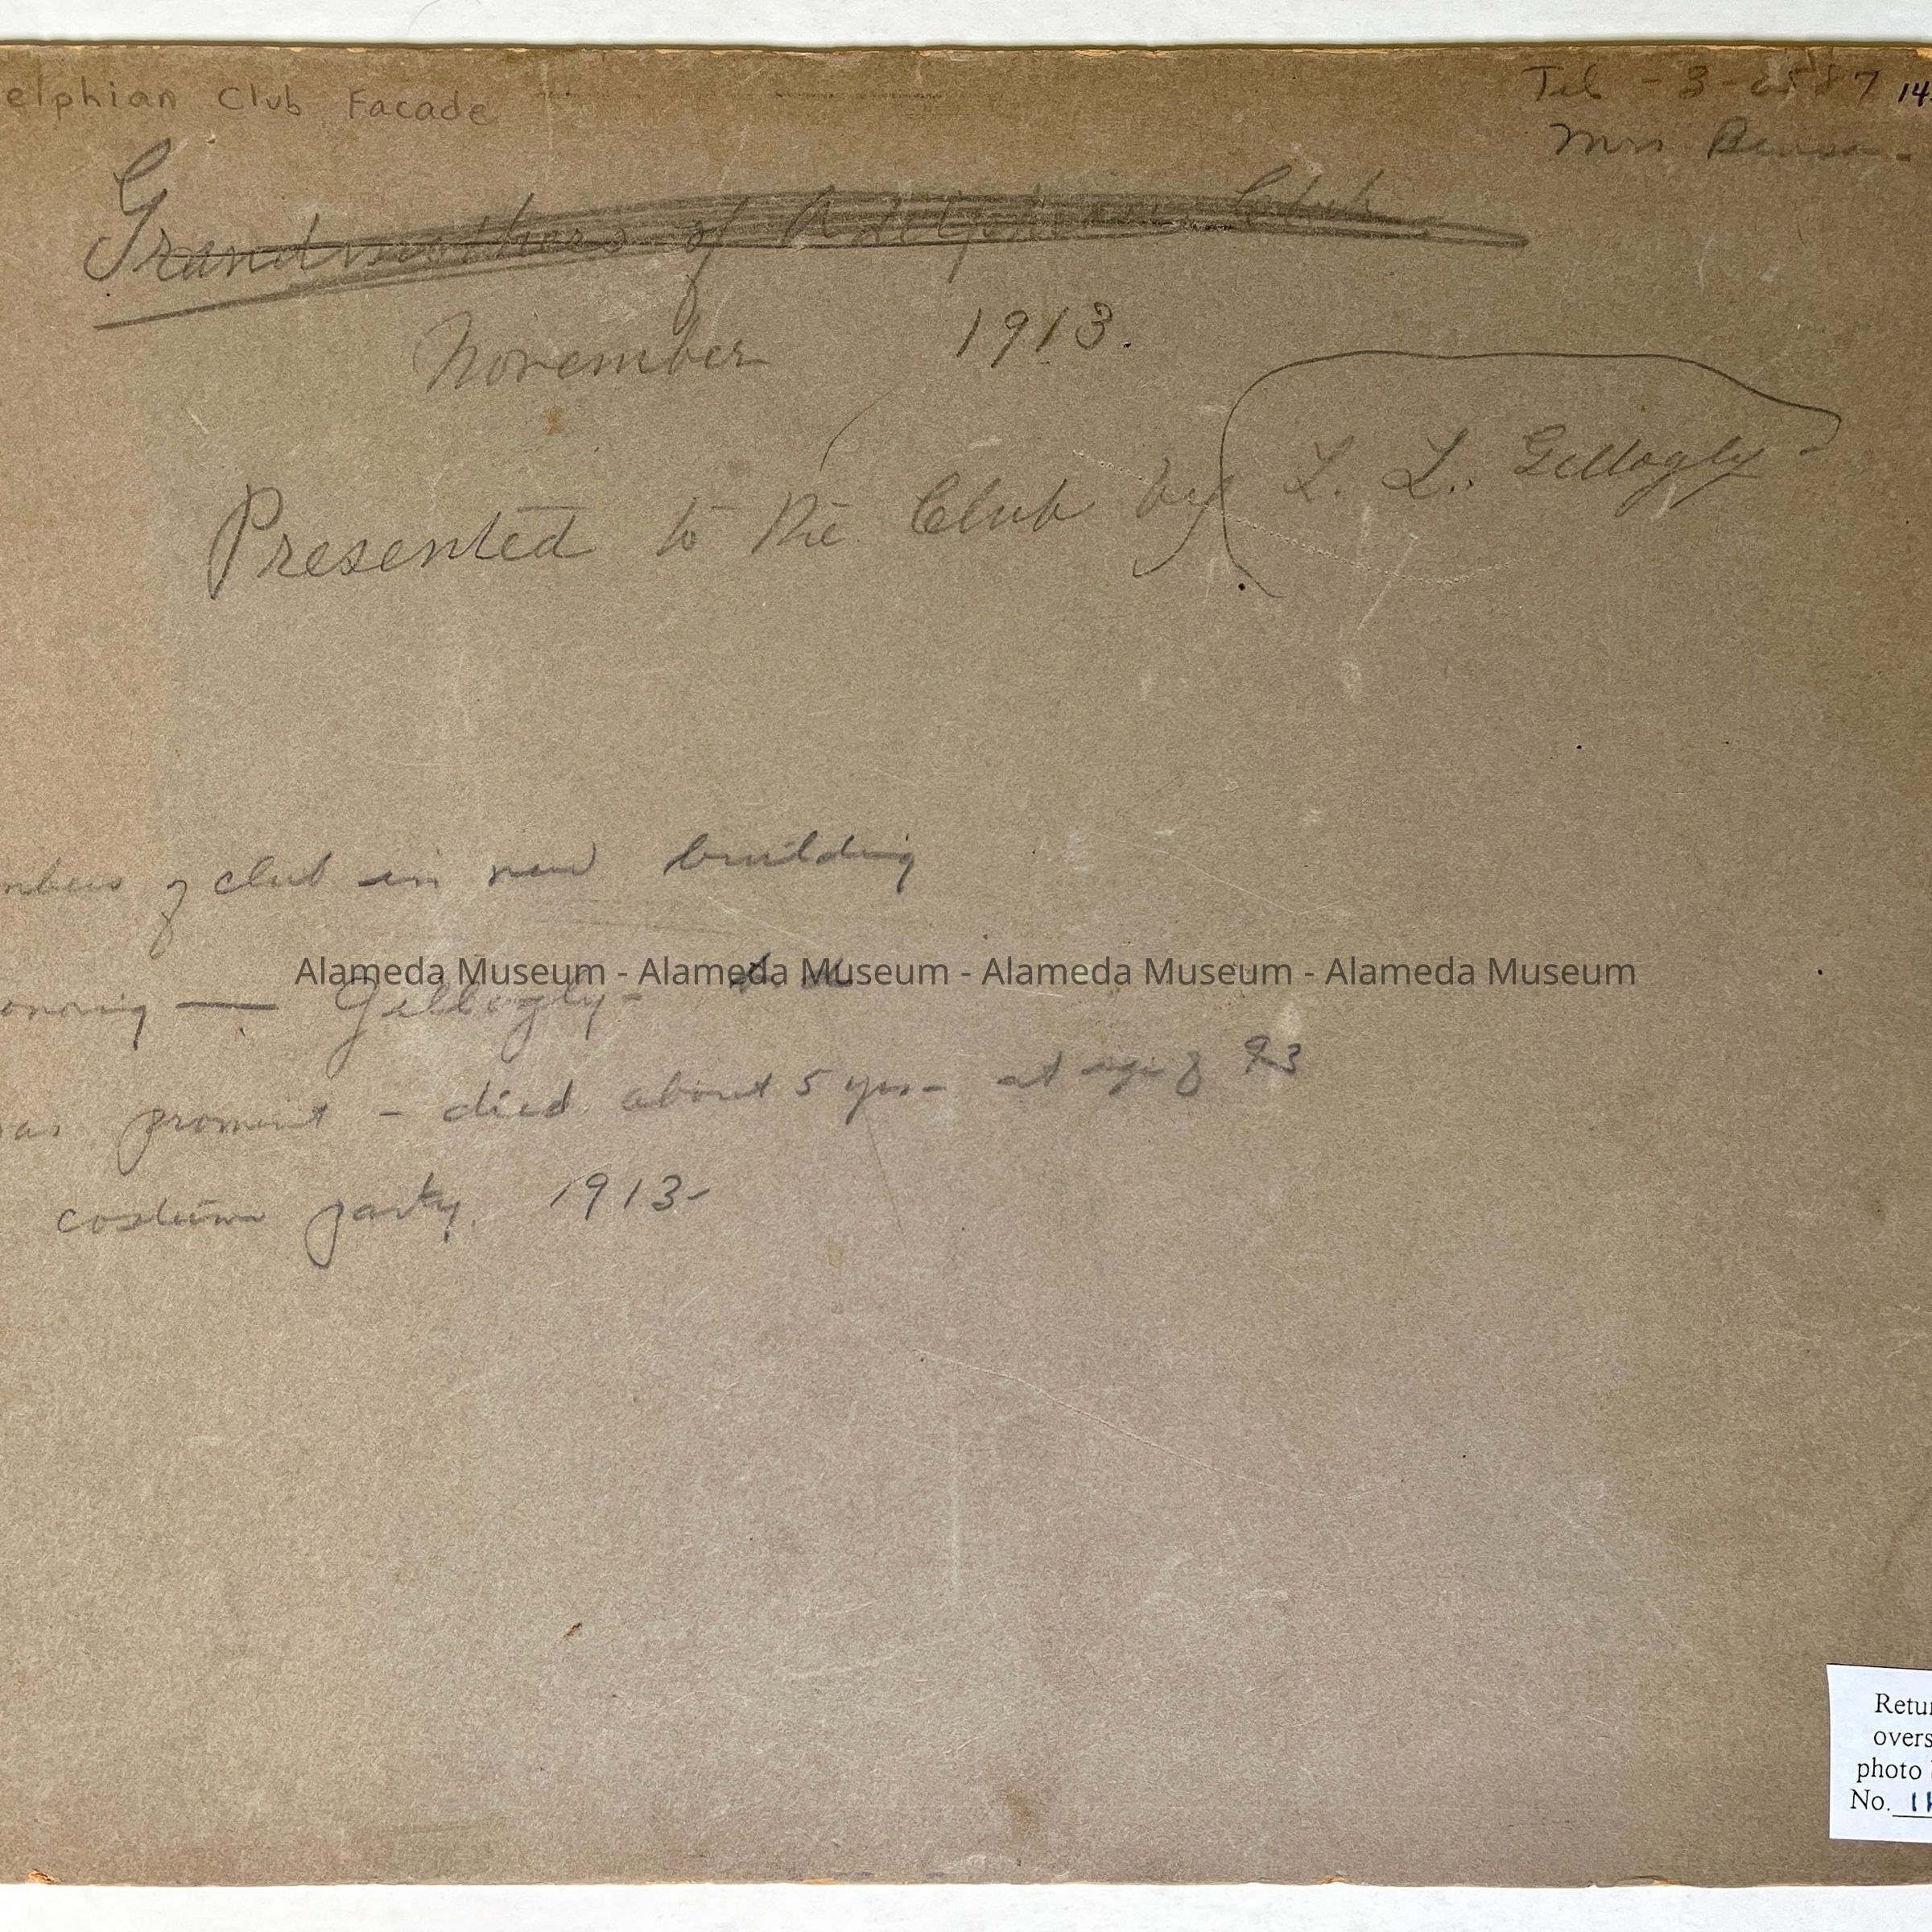 elphian Club Facade
Tel - 3-0587 14
Mrs
Grandmothers of Adelphian Club.
November 1913.
Presented to the Club by L. L. Gillogly -
mbers of club in new building
Alameda Museum - Alameda Museum - Alameda Museum - Alameda Museum
onoring — Gillogly -
as promint - died about 5 yrs - at age of 93
costume party. 1913 -
Retu
overs
photo
No. 1